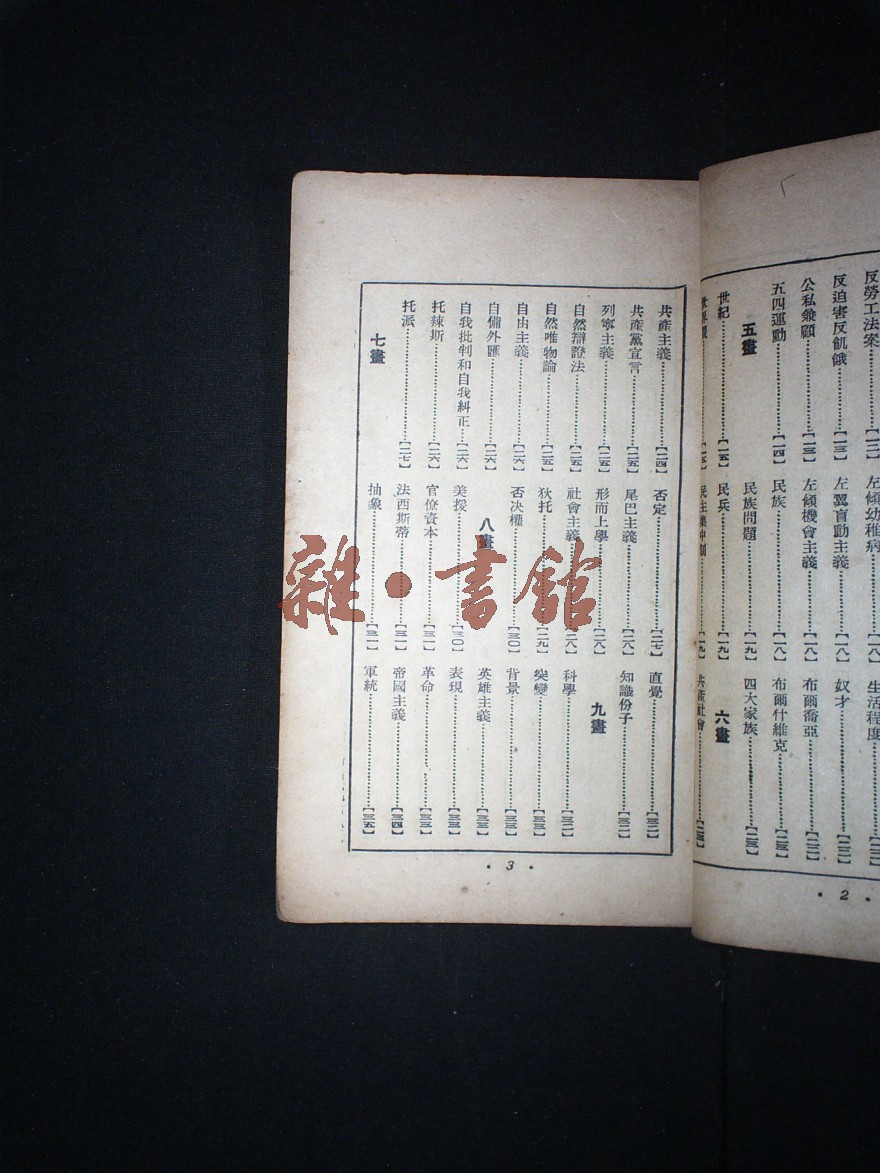 反勞工法案……【一二】
反迫害反飢餓……【一三】
公私兼顧……【一三】
五四運動……【一四】
五畫
世紀……【一五】
左傾幼稚病……【一八】
左翼盲動主義……【一八】
左傾機會主義……【一八】
民族……【一八】
民族問題……【一九】
民兵……【一九】
民主集中制……【一九】
生活程度
奴才……【二二】
布爾喬亞……【二二】
布爾什維克……【二三】
四大家族……【二三】
六畫
共產社會……【二三】
· 2 ·
共產主義……【二四】
共產黨宣言……【二五】
列寧主義……【二五】
自然辯證法……【二五】
自然唯物論……【二五】
自由主義……【二六】
自備外匯……【二六】
自我批判和自我糾正……【二六】
托辣斯……【二六】
托派……【二七】
七畫
否定……【二七】
尾巴主義……【二八】
形而上學……【二八】
社會主義……【二八】
狄托……【二九】
否決權……【三〇】
八畫
美援……【三〇】
官僚資本……【三一】
法西斯蒂……【三一】
抽象……【三一】
直覺……【三二】
知識份子……【三二】
九畫
科學……【三二】
突變……【三三】
背景……【三三】
英雄主義……【三三】
表現……【三三】
革命……【三三】
帝國主義……【三四】
軍統……【三五】
· 3 ·
雜·書館